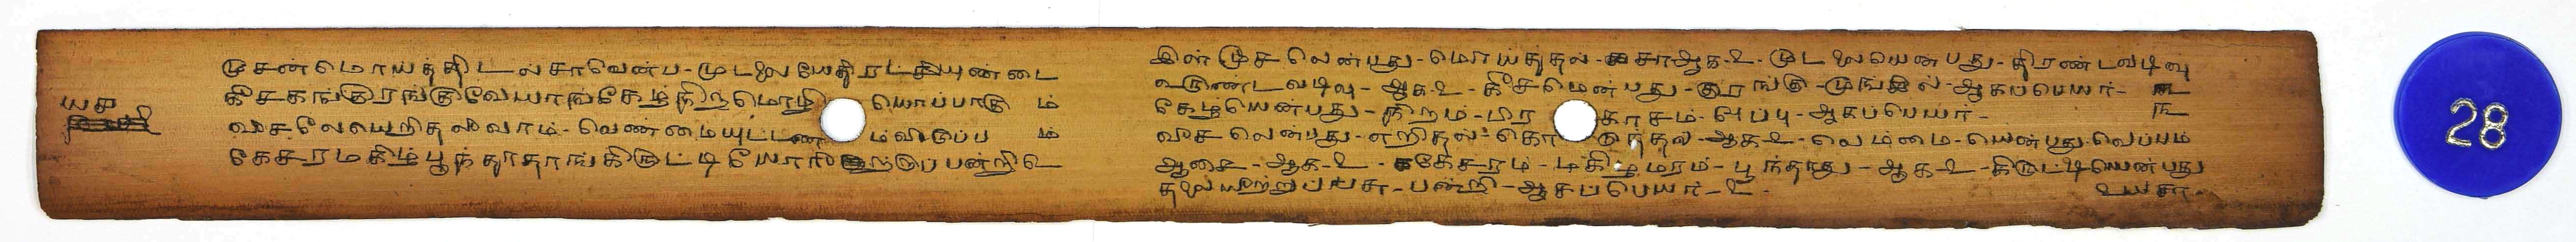 முசன்மொய்த்திடல்சாவென்ப-முடலையேதிரட்சியுண்டை
கீசகங்குரங்குவேயாங்கேழ்நிறமொழி யொப்பாகு ம்
வீசலேயெறிதலீவாம்-வெண்மையுட்டண ம்விருப்ப ம்
கேசரமகிழ்பூந்தாதாங்கிருட்டியோரீற்றுப்பன்றி ௨
இன் முசலென்பது-மொய்த்தல்-சா ஆக-௨- முடலையென்பது-திரண்டவடிவு
உருண்டவடிவு-ஆக-௨-கீசமென்பது-குரங்கு-மூங்கில்-ஆகப்பெயர்- ௩
கேழென்பது-நிறம்-பிர காசம்-ஒப்பு-ஆகப்பெயர்- ௩
வீசலென்பது-எறிதல்-கொ டுத்தல்-ஆக-௨-வெம்மை-யென்பது-வெப்பம்
ஆசை-ஆக-௨-கேசரம்-மகிழமரம்-பூந்தாது-ஆக-௨-கிருட்டியென்பது
தலையீற்றுப்பசு-பன்றி-ஆகப்பெயர்-௨-
28